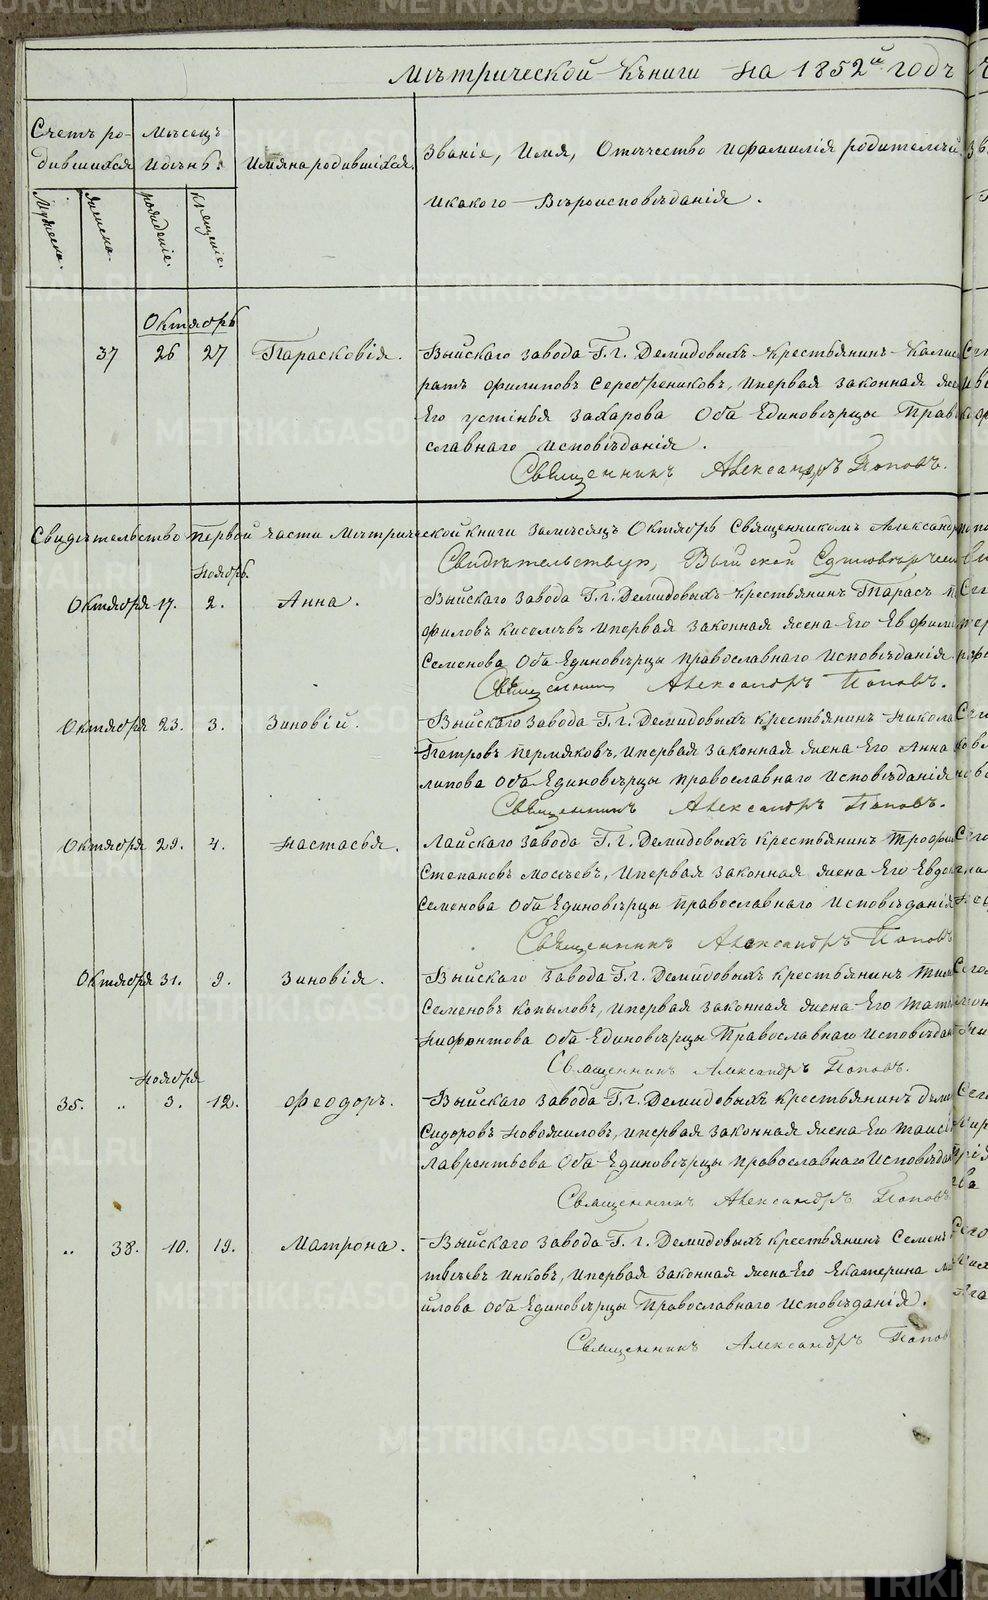 Мѣтрической Книги на 1852й годъ
Счетъ ро-
дившихся
Мѣсецъ
и день:
Имяна родившихся.
Званіе, Имя, Отечество и фамилія родителей
и какого Вѣроисповѣданія.
Мужеска.
Женска.
рожденіе.
крещеніе.
Октябрь
37 26 27 Парасковія. Выйскаго завода Г. г. Демидовыхъ крестьянинъ Калис
ратъ филиповъ Серебрениковъ, и первая законная же
Его устінья захарова Оба Единовѣрцы Прав
славнаго исповѣданія.
Священникъ Александръ Поповъ.
Свидѣтельство первой части Мѣтрической книги за мѣсяцъ Октябрь Священникомъ Александр
Свидѣтельствую, Выйской
Ноябрь.
Октября 17. 2. Анна. Выйскаго завода Г. г. Демидовыхъ крестьянинъ Тарасъ
филовъ киселѣвъ и первая законная жена Его Евфим
Семенова Оба Единовѣрцы православнаго исповѣданія
Священникъ Александръ Поповъ.
Октября 23. 3. Зиновій. Выйскаго завода Г. г. Демидовыхъ крестьянинъ Никола
Петровъ пермяковъ, и первая законная жена Его Анна
липова Оба Единовѣрцы православнаго исповѣданія
Священникъ Александръ Поповъ.
Октября 29. 4. Настасья. Лайскаго завода Г. г. Демидовыхъ крестьянинъ Трофи
Степановъ Мосѣевъ, и первая законная жена Его Евдо
Семенова Оба Единовѣрцы православнаго исповѣданія
Священникъ Александръ Поповъ
Октября 31. 9. Зиновія. Выйскаго Завода Г. г. Демидовыхъ крестьянинъ Тим
Семеновъ копыловъ, и первая законная жена Его Тать
Нифонтова Оба Единовѣрцы Православнаго исповѣдан
Священникъ Александръ Поповъ.
Ноября
35. „ 3. 12. Феодоръ. Выйскаго завода Г. г. Демидовыхъ крестьянинъ дѣм
Сидоровъ новожиловъ, и первая законная жена Его Таисі
Лаврентьева Оба Единовѣрцы православнаго исповѣдан
Священникъ Александръ Поповъ
„ 38. 10. 19. Матрона. Выйскаго завода Г. г. Демидовыхъ крестьянинъ Семенъ
твѣевъ инковъ, и первая законная жена Его Екатерина
йлова Оба Единовѣрцы Православнаго исповѣданія.
Священникъ Александръ Попов
METRIKI.GASO-URAL.RU